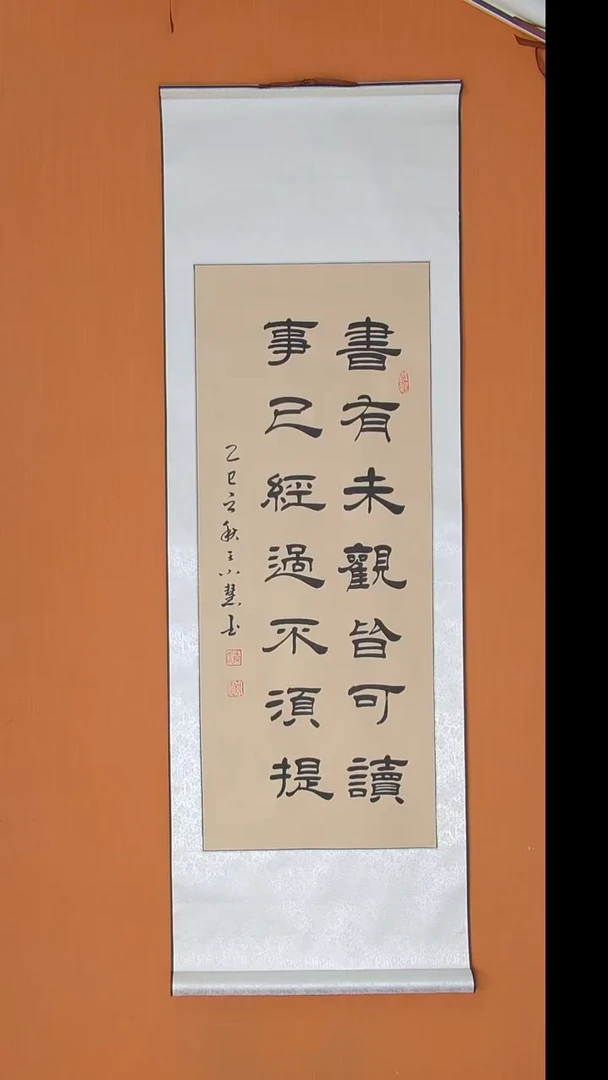 書有未觀皆可讀
事已經過不須提
乙巳立秋王小慧书